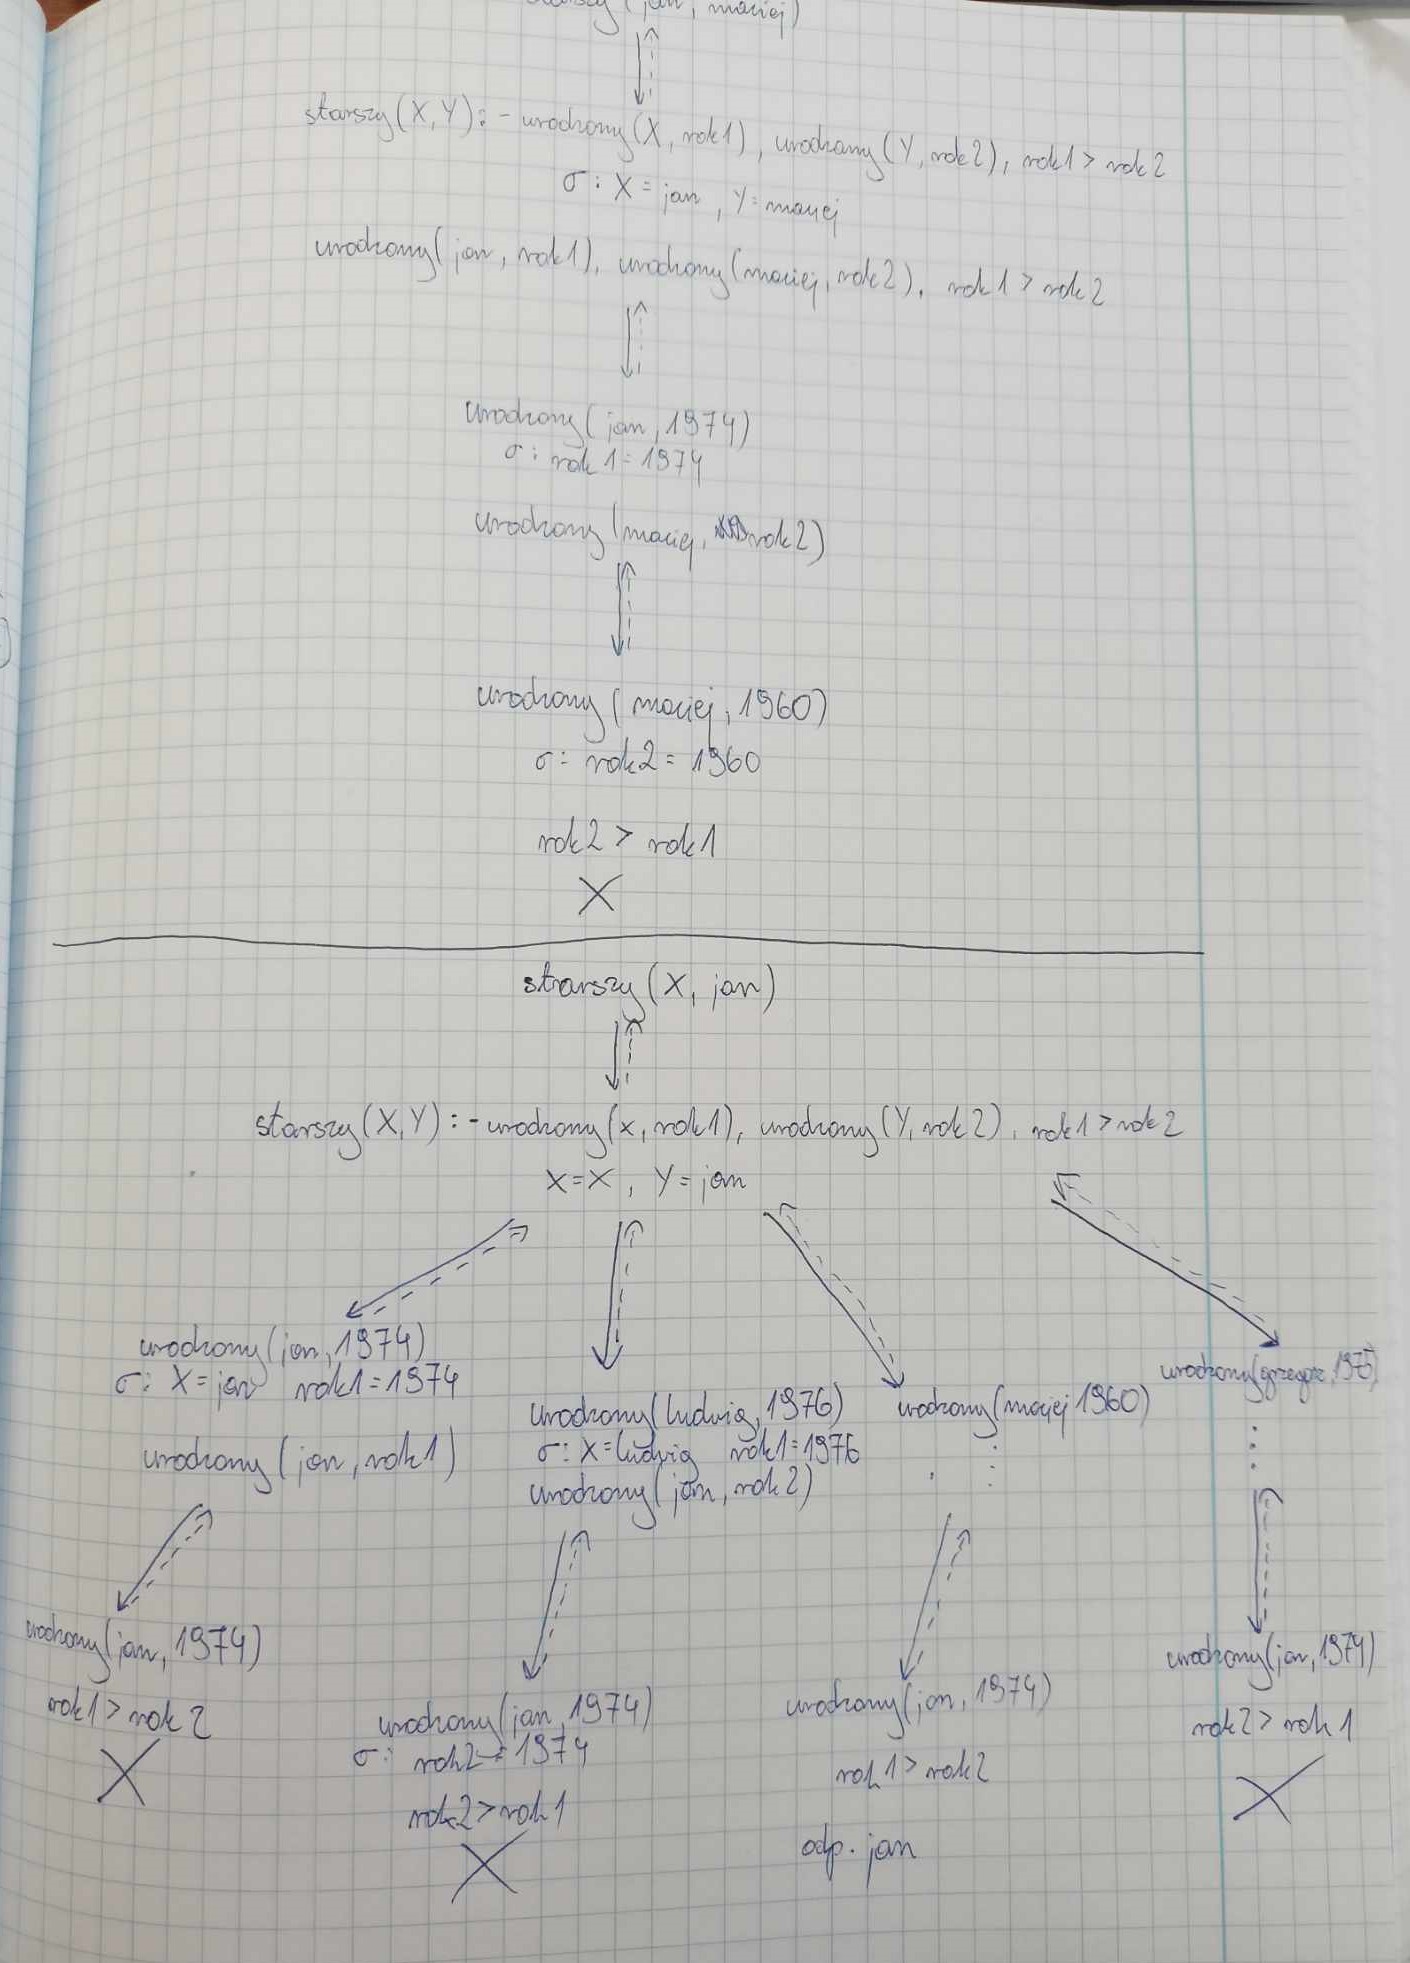 starszy(jan, maciej)
starszy(X,Y):-urodzony(X, rok1), urodzony(Y, rok2), rok1 > rok2
σ: X = jan, Y = maciej
urodzony(jan, rok1), urodzony(maciej, rok2), rok1 > rok2
urodzony(jan, 1974)
σ: rok1 = 1974
urodzony(maciej, rok2)
urodzony(maciej, 1960)
σ: rok2 = 1960
rok2 > rok1
X
starszy(X, jan)
starszy(X,Y):-urodzony(x, rok1), urodzony(Y, rok2), rok1 > rok2
X=X, Y=jan
urodzony(jan, 1974)
σ: X=jan rok1=1974
urodzony(jan, rok1)
urodzony(jan, 1974)
rok1 > rok2
X
urodzony(ludwig, 1976)
σ: X=ludwig rok1=1976
urodzony(jan, rok2)
urodzony(jan, 1974)
σ: rok2 = 1974
rok2 > rok1
X
urodzony(maciej 1960)
urodzony(jan, 1974)
rok1 > rok2
odp. jan
urodzony(grzegorz, 1975)
urodzony(jan, 1974)
rok2 > rok1
X